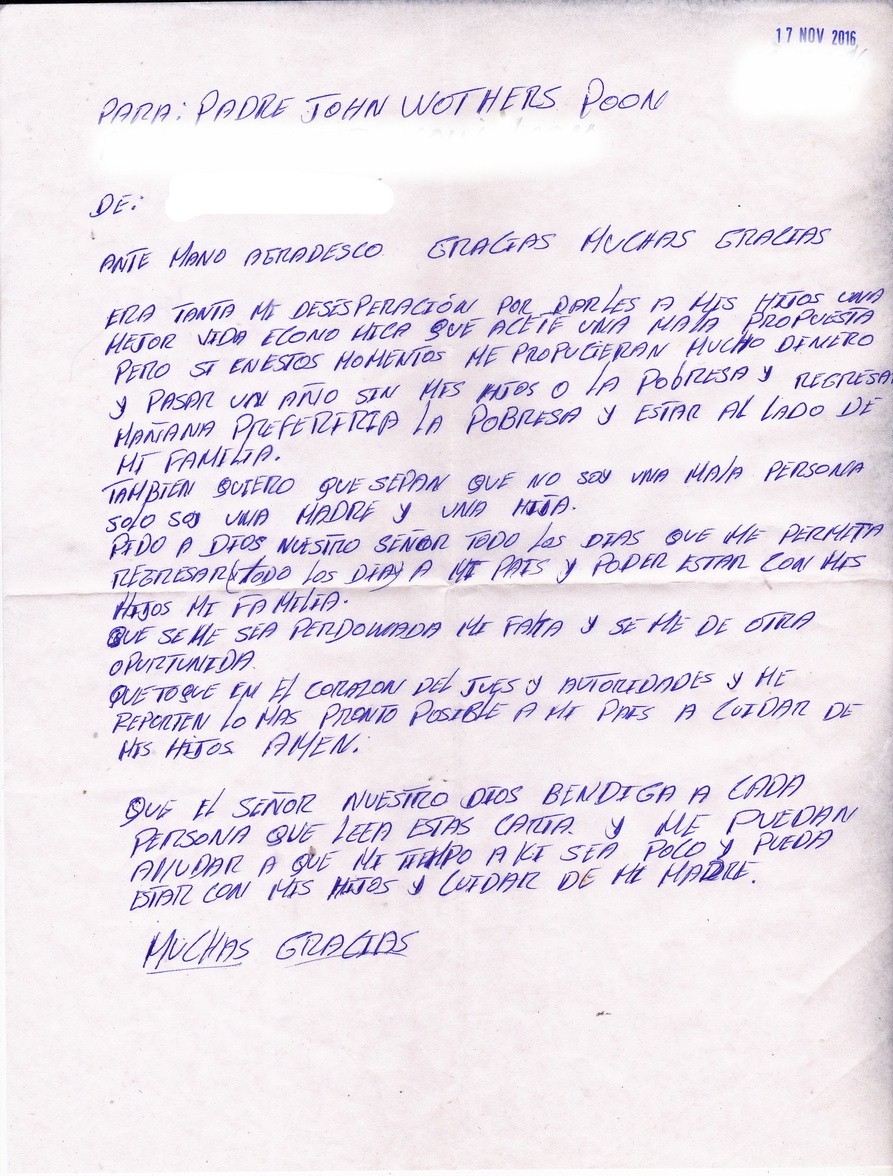 17 NOV 2016
PARA: PADRE JOHN WOTHERS POON
DE:
ANTE MANO AGRADESCO. GRACIAS MUCHAS GRACIAS
ERA TANTA MI DESESPERACIÓN POR DARLES A MIS HIJOS UNA
MEJOR VIDA ECONOMICA QUE ACETÉ UNA MALA PROPUESTA
PERO SI EN ESTOS MOMENTOS ME PROPUCIERAN MUCHO DINERO
Y PASAR UN AÑO SIN MIS HIJOS O LA POBRESA Y REGRESA
MAÑANA PREFERIRIA LA POBRESA Y ESTAR AL LADO DE
MI FAMILIA.
TAMBIEN QUIERO QUE SEPAN QUE NO SOY UNA MALA PERSONA
SOLO SOY UNA MADRE Y UNA HIJA.
PIDO A DIOS NUESTRO SEÑOR TODO LOS DIAS QUE ME PERMITA
REGRESAR (TODO LOS DIA) A MI PAIS Y PODER ESTAR CON MIS
HIJOS MI FAMILIA.
QUE SE ME SEA PERDONADA MI FALTA Y SE ME DE OTRA
OPURTUNIDA.
QUE TOQUE EN EL CORAZON DEL JUES Y AUTORIDADES Y ME
REPORTEN LO MAS PRONTO POSIBLE A MI PAIS A CUIDAR DE
MIS HIJOS. AMEN.
QUE EL SEÑOR NUESTRO DIOS BENDIGA A CADA
PERSONA QUE LEEA ESTAS CARTA. Y ME PUEDAN
AYUDAR A QUE MI TIEMPO A KI SEA POCO Y PUEDA
ESTAR CON MIS HIJOS Y CUIDAR DE MI MADRE.
MUCHAS GRACIAS